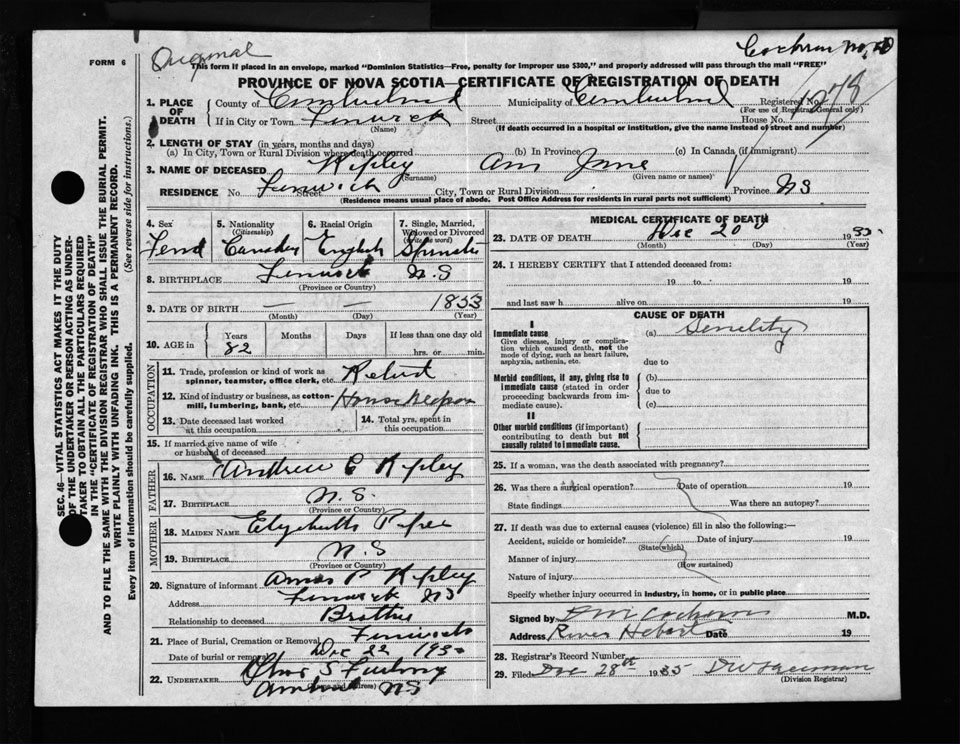 Original
FORM 6
This form if placed in an envelope, marked "Dominion Statistics—Free, penalty for improper use $300," and properly addressed will pass through the mail "FREE"
PROVINCE OF NOVA SCOTIA—CERTIFICATE OF REGISTRATION OF DEATH
1. PLACE OF DEATH County of Cumberland Municipality of Cumberland Registered No.
(For use of Registrar General only)
If in City or Town Fenwick Street House No.
(Name) (If death occurred in a hospital or institution, give the name instead of street and number)
2. LENGTH OF STAY (in years, months and days)
(a) In City, Town or Rural Division where death occurred (b) In Province (c) In Canada (if immigrant)
3. NAME OF DECEASED Ripley Ann Jane
(Surname) (Given name or names)
RESIDENCE No. Fenwick Street City, Town or Rural Division Province NS
(Residence means usual place of abode. Post Office Address for residents in rural parts not sufficient)
4. Sex 5. Nationality (Citizenship) 6. Racial Origin 7. Single, Married, Widowed or Divorced (Write the word)
English
8. BIRTHPLACE Fenwick N.S
(Province or Country)
9. DATE OF BIRTH — — 1853
(Month) (Day) (Year)
10. AGE in Years Months Days If less than one day old
82 hrs. or min.
OCCUPATION
11. Trade, profession or kind of work as spinner, teamster, office clerk, etc. Retired
12. Kind of industry or business, as cotton-mill, lumbering, bank, etc.
13. Date deceased last worked at this occupation
14. Total yrs. spent in this occupation
15. If married give name of wife or husband of deceased
FATHER
16. NAME Andrew C Ripley
17. BIRTHPLACE N.S.
(Province or Country)
MOTHER
18. MAIDEN NAME
19. BIRTHPLACE N.S
(Province or Country)
20. Signature of informant Amos P Ripley
Address Fenwick NS
Relationship to deceased Brother
21. Place of Burial, Cremation or Removal Fenwick
Date of burial or removal Dec 22 193
22. UNDERTAKER
Amherst NS
MEDICAL CERTIFICATE OF DEATH
23. DATE OF DEATH Dec 20 19
(Month) (Day) (Year)
24. I HEREBY CERTIFY that I attended deceased from:
19 to 19
and last saw h alive on 19
CAUSE OF DEATH
I
Immediate cause (a) Senility
Give disease, injury or complication which caused death, not the mode of dying, such as heart failure, asphyxia, asthenia, etc.
due to
Morbid conditions, if any, giving rise to immediate cause (stated in order proceeding backwards from immediate cause).
(b)
due to
(c)
II
Other morbid conditions (if important) contributing to death but not causally related to immediate cause.
25. If a woman, was the death associated with pregnancy?
26. Was there a surgical operation? Date of operation 19
State findings Was there an autopsy?
27. If death was due to external causes (violence) fill in also the following:—
Accident, suicide or homicide? Date of injury 19
(State which)
Manner of injury
(How sustained)
Nature of injury
Specify whether injury occurred in industry, in home, or in public place
Signed by M.D.
Address River Hebert Date 19
28. Registrar's Record Number
29. Filed Dec 28th 1935
(Division Registrar)
SEC. 46—VITAL STATISTICS ACT MAKES IT THE DUTY OF THE UNDERTAKER OR PERSON ACTING AS UNDERTAKER TO OBTAIN ALL THE PARTICULARS REQUIRED IN THE "CERTIFICATE OF REGISTRATION OF DEATH" AND TO FILE THE SAME WITH THE DIVISION REGISTRAR WHO SHALL ISSUE THE BURIAL PERMIT.
WRITE PLAINLY WITH UNFADING INK. THIS IS A PERMANENT RECORD.
Every item of information should be carefully supplied. (See reverse side for instructions.)